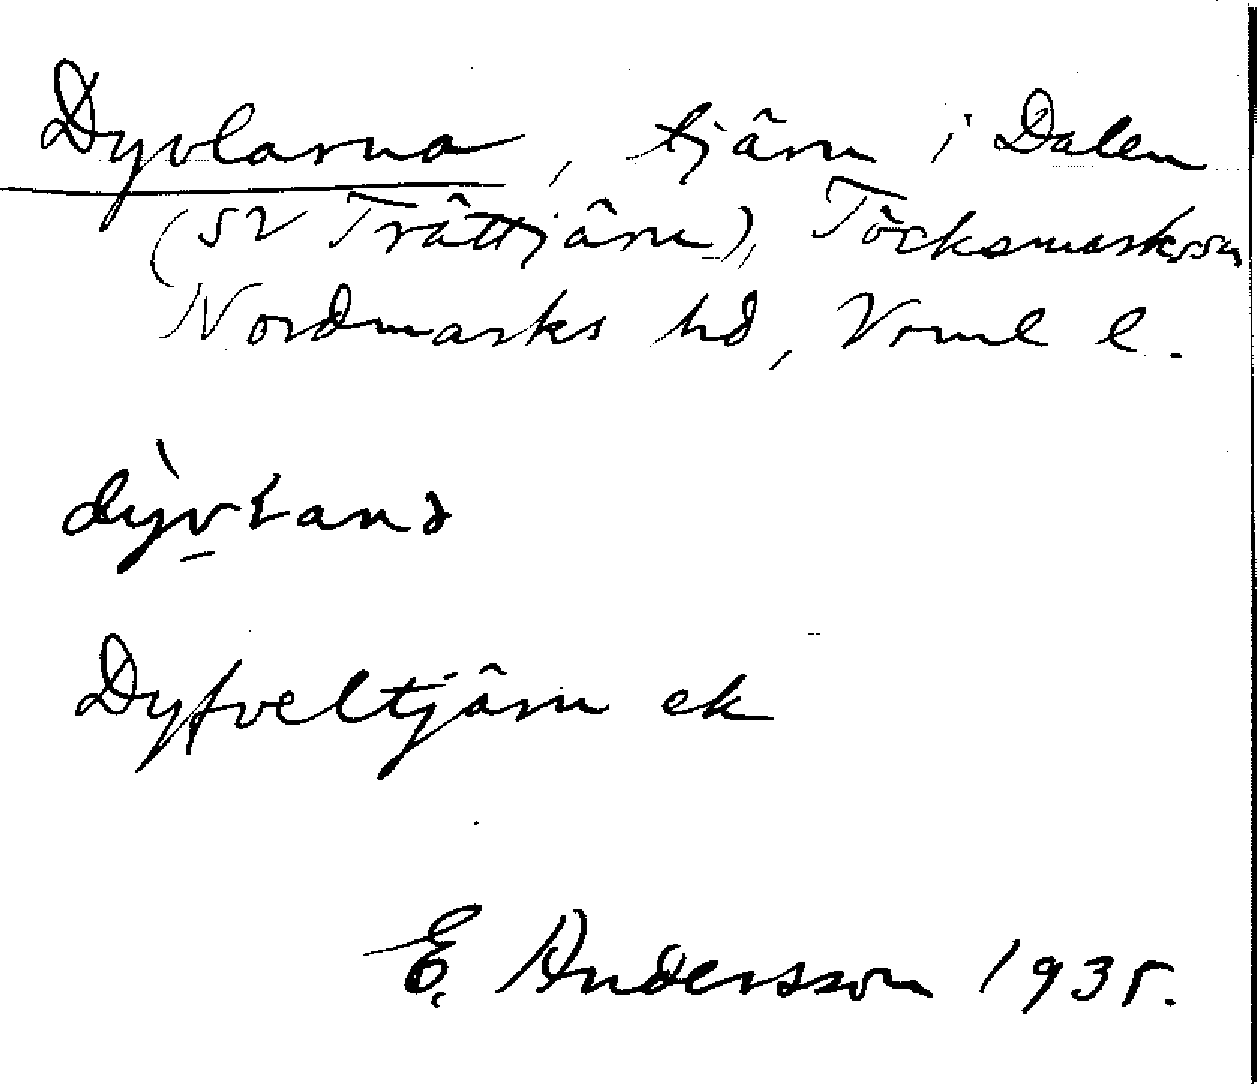 Dyvlarna, tjärn i Dalen
(SV Trättjärn), Töcksmarks sn
Nordmarks hd, Vrml l.
dỳ̠vɫanə
Dyfveltjärn ek
E. Andersson 1935.